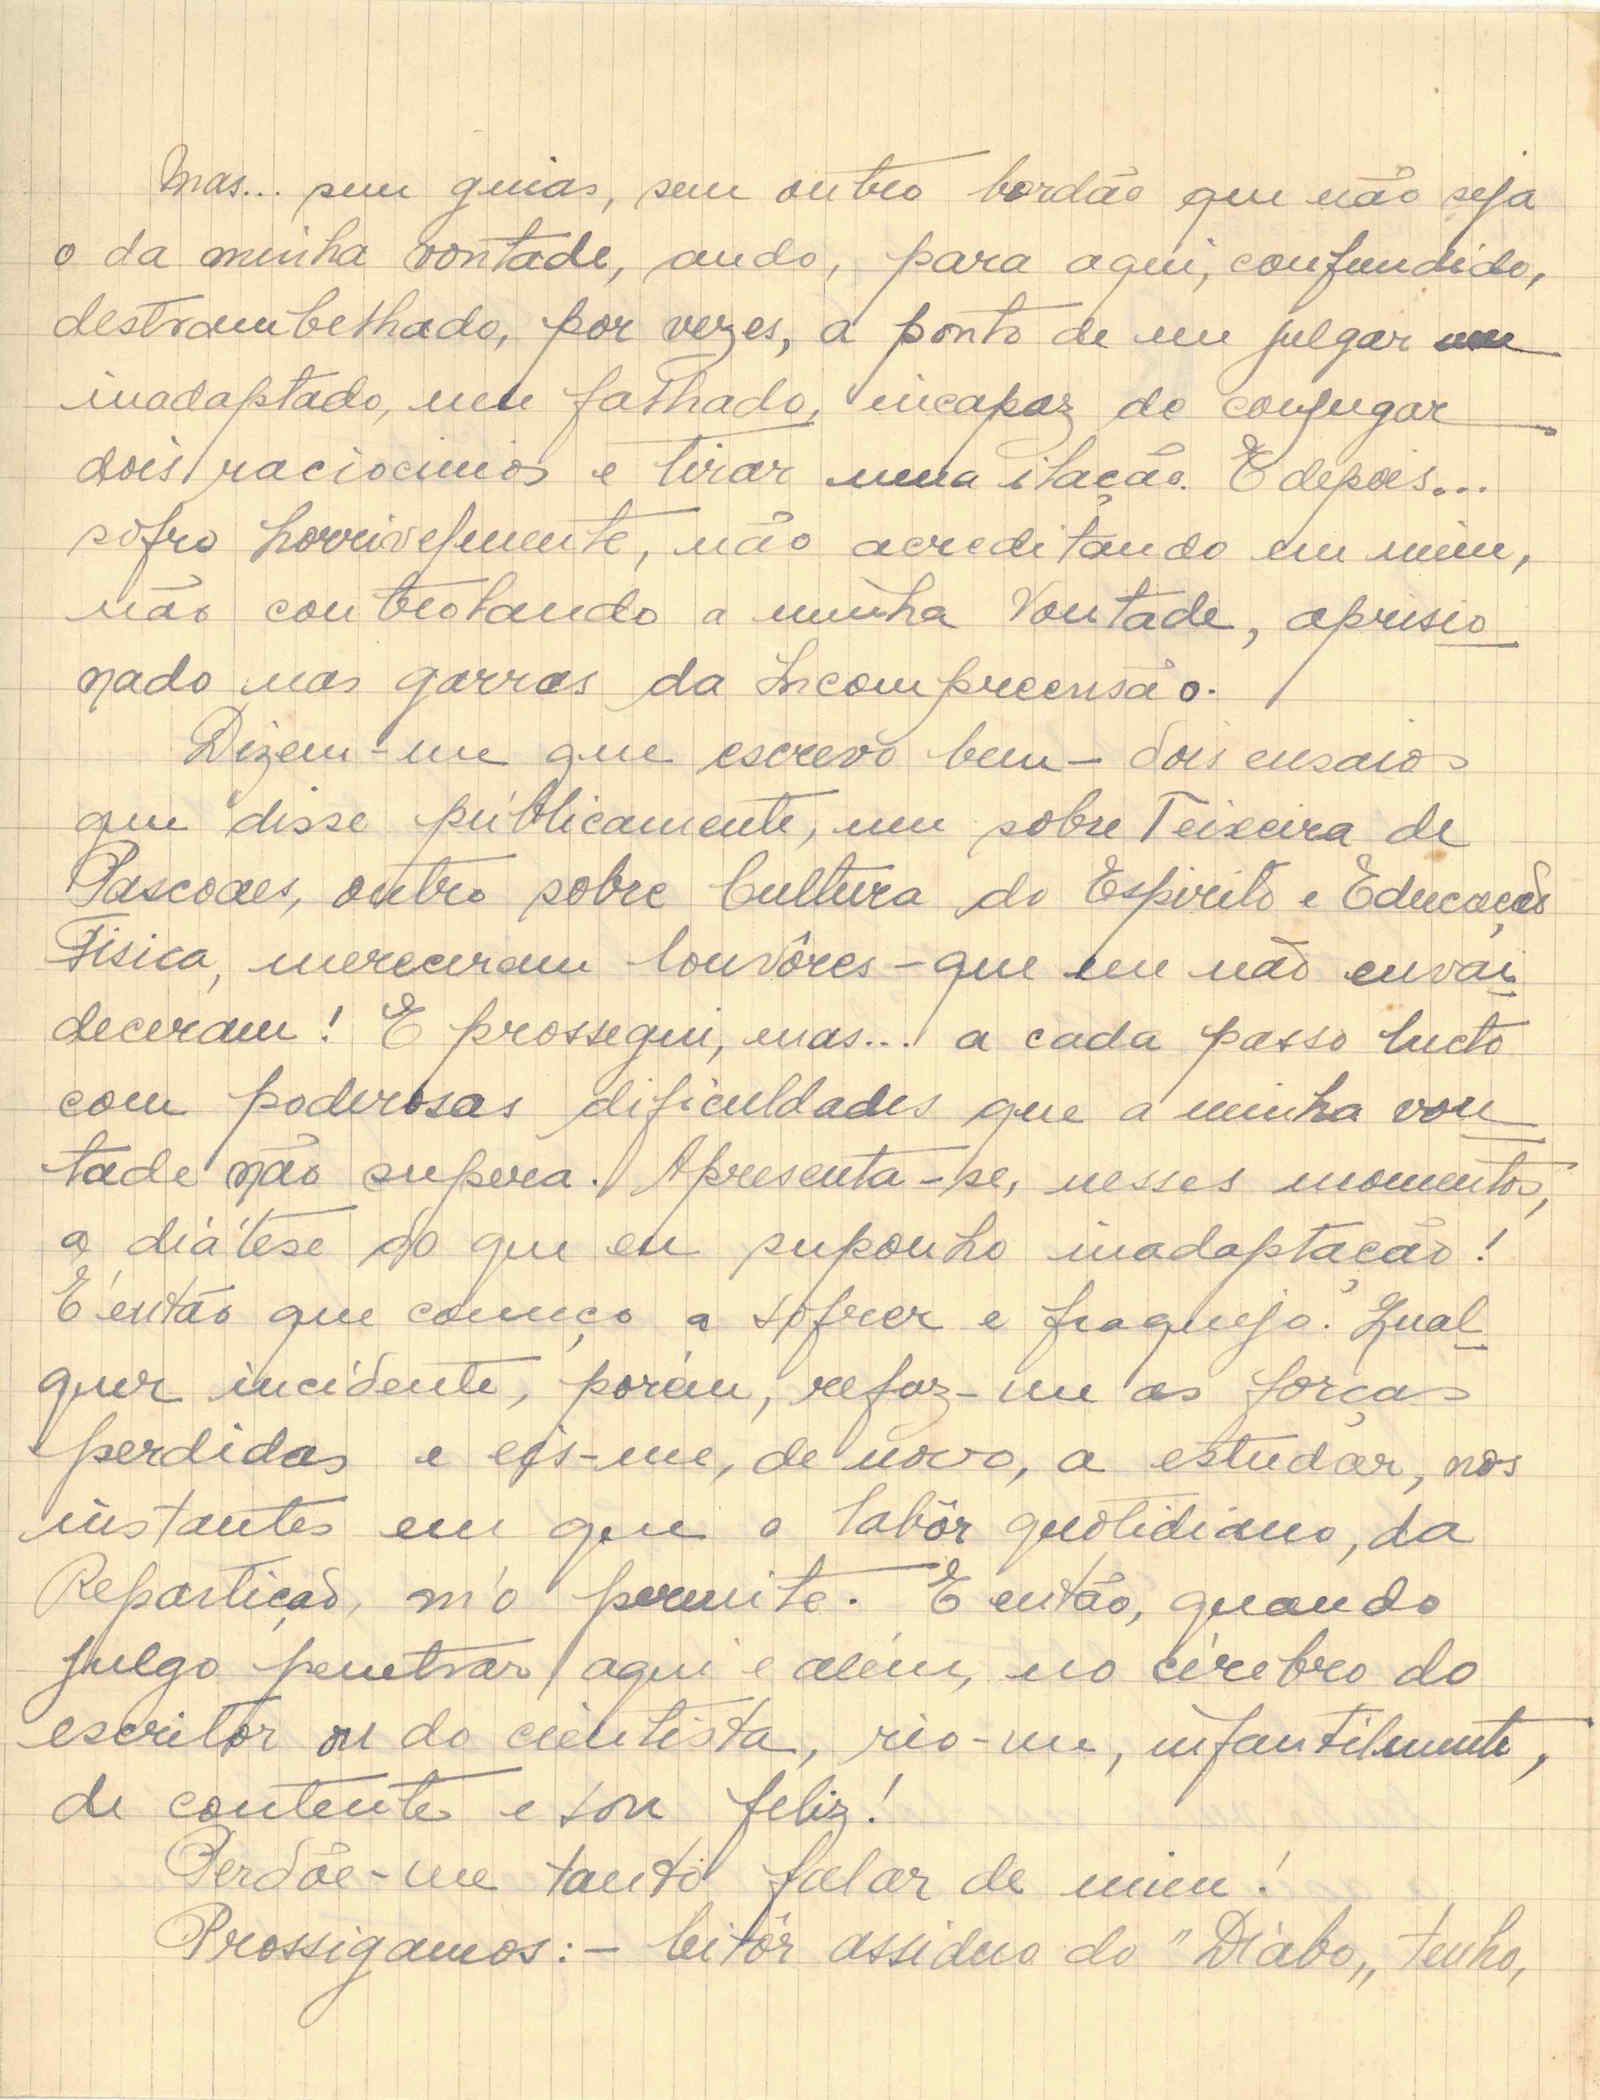 Mas... sem guias, sem outro bordão que não seja
o da minha vontade, ando, para aqui, confundido,
destrambelhado, por vezes, a ponto de me julgar um
inadaptado, um falhado, incapaz de conjugar
dois raciocinios e tirar uma ilação. E depois...
sofro horrivelmente, não acreditando em mim,
não controlando a minha Vontade, aprisio
nado nas garras da Incompreensão.
Dizem-me que escrevo bem - dois ensaios
que disse públicamente, um sobre Teixeira de
Pascoaes, outro sobre Cultura do Espirito e Educação
Fisica, mereceram louvôres - que me não envai
deceram! E prossegui, mas... a cada passo lucto
com poderosas dificuldades que a minha von
tade não supera. Apresenta-se, nesses momentos,
a diátese do que eu suponho inadaptação!
E' então que começo a sofrer e fraquejo. Qual
quer incidente, porém, refaz-me as forças
perdidas e eis-me, de novo, a estudar, nos
instantes em que o labôr quotidiano, da
Repartição, m'o permite. E então, quando
julgo penetrar, aqui e além, no cérebro do
escritor ou do cientista, rio-me, infantilmente,
de contente e sou feliz!
Perdõe-me tanto falar de mim!
Prossigamos: - leitôr assiduo do "Diabo„ tenho,